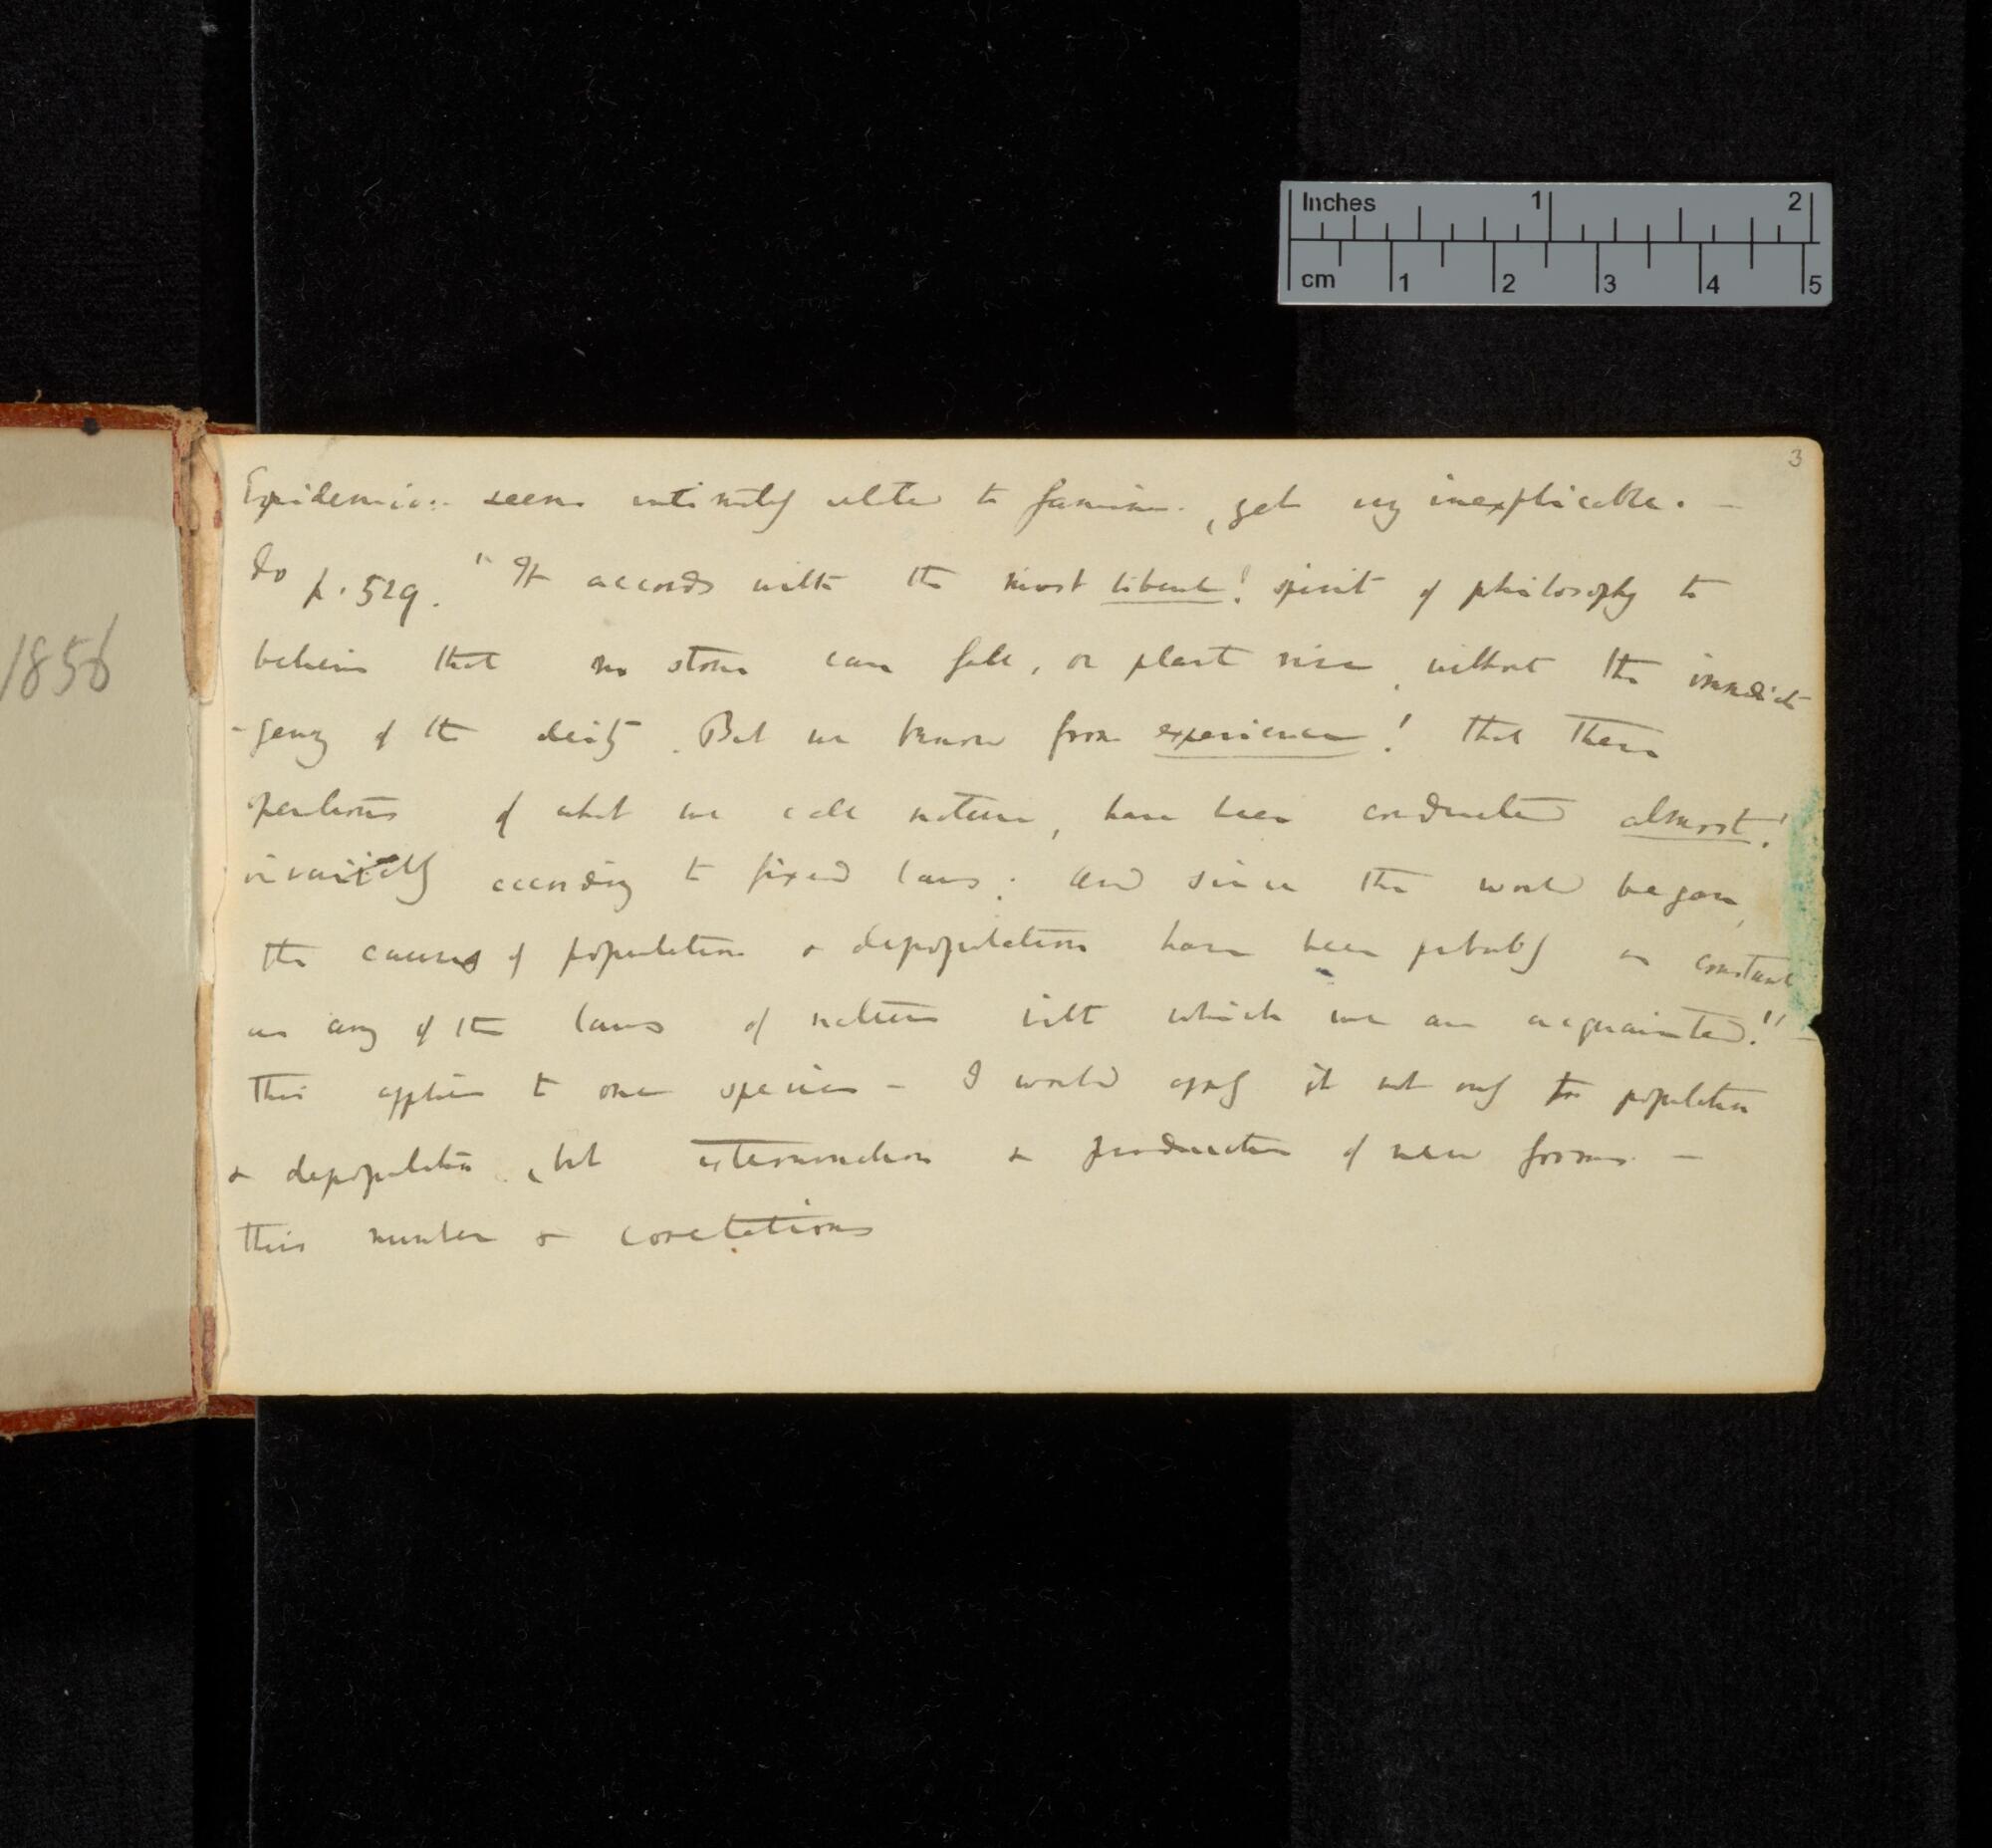 3
Epidemics. seem intimately related to famine., yet very inexplicable. —
do p. 529. "It accords with the most liberal! spirit of philosophy to
believe that no stone can fall, or plant rise, without the immediate
-gency of the deity. But we know from experience! that these
operations of what we call nature, have been conducted almost!
invariably according to fixed laws: And since the world began,
the causes of population & depopulation have been probably as constant
as any of the laws of nature with which we are acquainted." —
This applies to one species — I would apply it not only to population
& depopulation, but extermination & production of new forms. —
this number & correlations
1856
Inches 1 2
cm 1 2 3 4 5